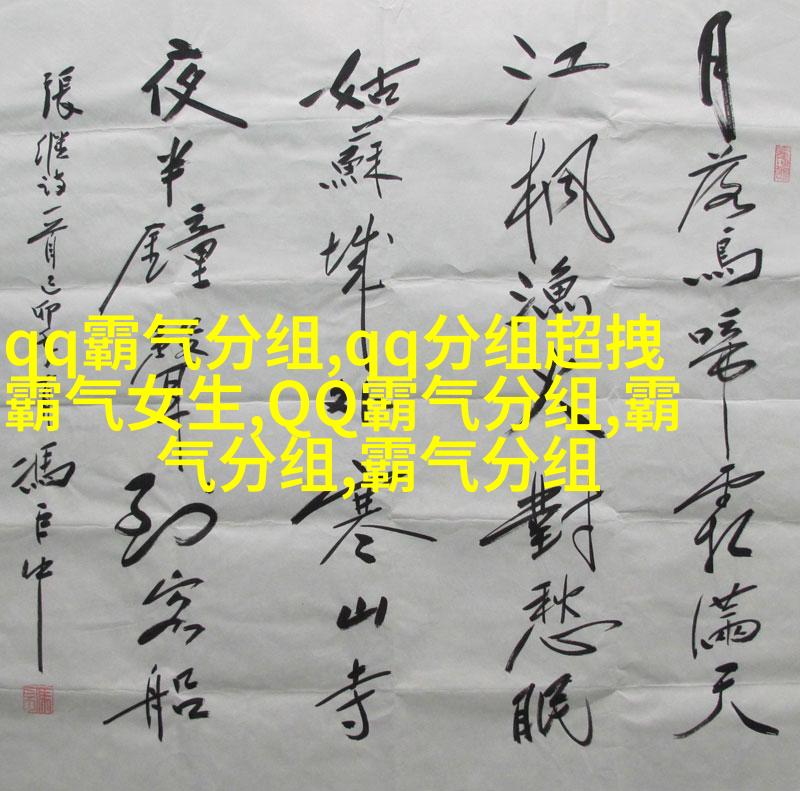 月落烏啼霜滿天
江楓漁火對愁眠
姑蘇城外寒山寺
夜半鐘聲到客船
張繼詩一首己卯 馮 中
qq霸气分组,qq分组超拽
霸气女生,QQ霸气分组,霸
气分组,霸气分组